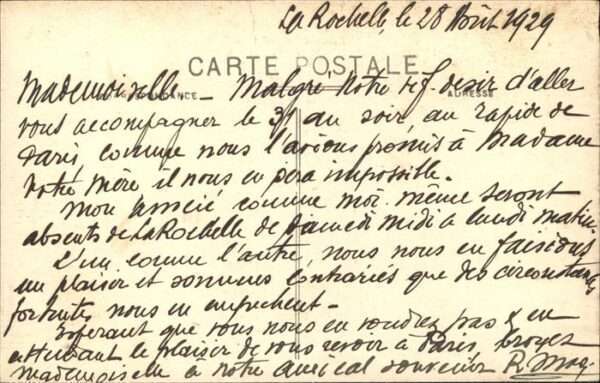 La Rochelle, le 28 Août 1929
CARTE POSTALE
Mademoiselle - Malgré notre vif désir d'aller
ADRESSE
vous accompagner le 31 au soir, au rapide de
Paris, comme nous l'avions promis à Madame
votre mère il nous en sera impossible.
Mon associé comme moi-même seront
absents de La Rochelle de samedi midi à lundi matin.
L'un comme l'autre, nous nous en faisions
un plaisir et sommes contrariés que des circonstances
fortuites nous en empêchent -
Espérant que vous nous en voudrez pas & en
attendant le plaisir de vous revoir à Paris, croyez
mademoiselle à notre amical souvenir R.